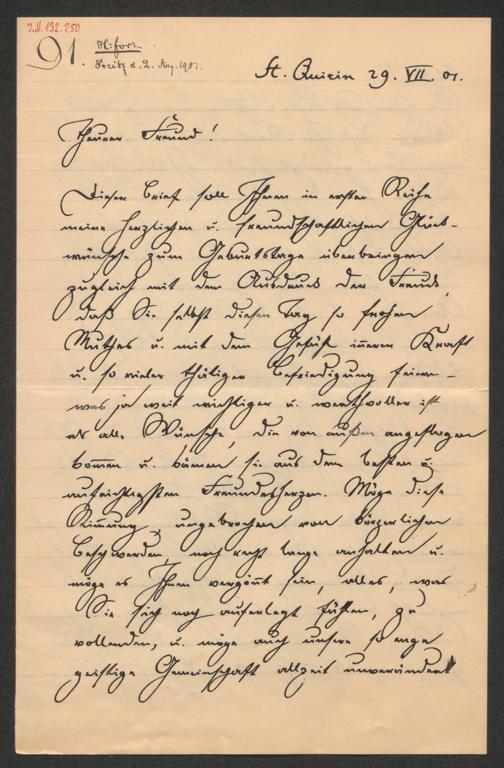 I.N. 132.250
91.
St. Quirin 29. VII. 01.
Theurer Freund!
Dieser Brief soll Ihnen in erster Reihe
meine herzlichen u. freundschaftlichen Glück-
wünsche zum Geburtstage überbringen
zugleich mit dem Ausdruck der Freude,
daß Sie selbst diesen Tag so frohen
Muthes u. mit dem Gefühl inneren Kraft
u. so vieler thätiger Befriedigung feiern –
was ja weit wichtiger u. werthvoller ist
als alle Wünsche, die von außen angeflogen
kommen u. kämen sie aus dem besten u.
aufrichtigsten Freundesherzen. Möge diese
Stimmung, ungebrochen von körperlichen
Beschwerden, noch recht lange anhalten u.
möge es Ihnen vergönnt sein, alles, was
Sie sich noch auferlegt fühlen, zu
vollenden, u. möge auch unsere so enge
geistige Gemeinschaft allzeit unverändert